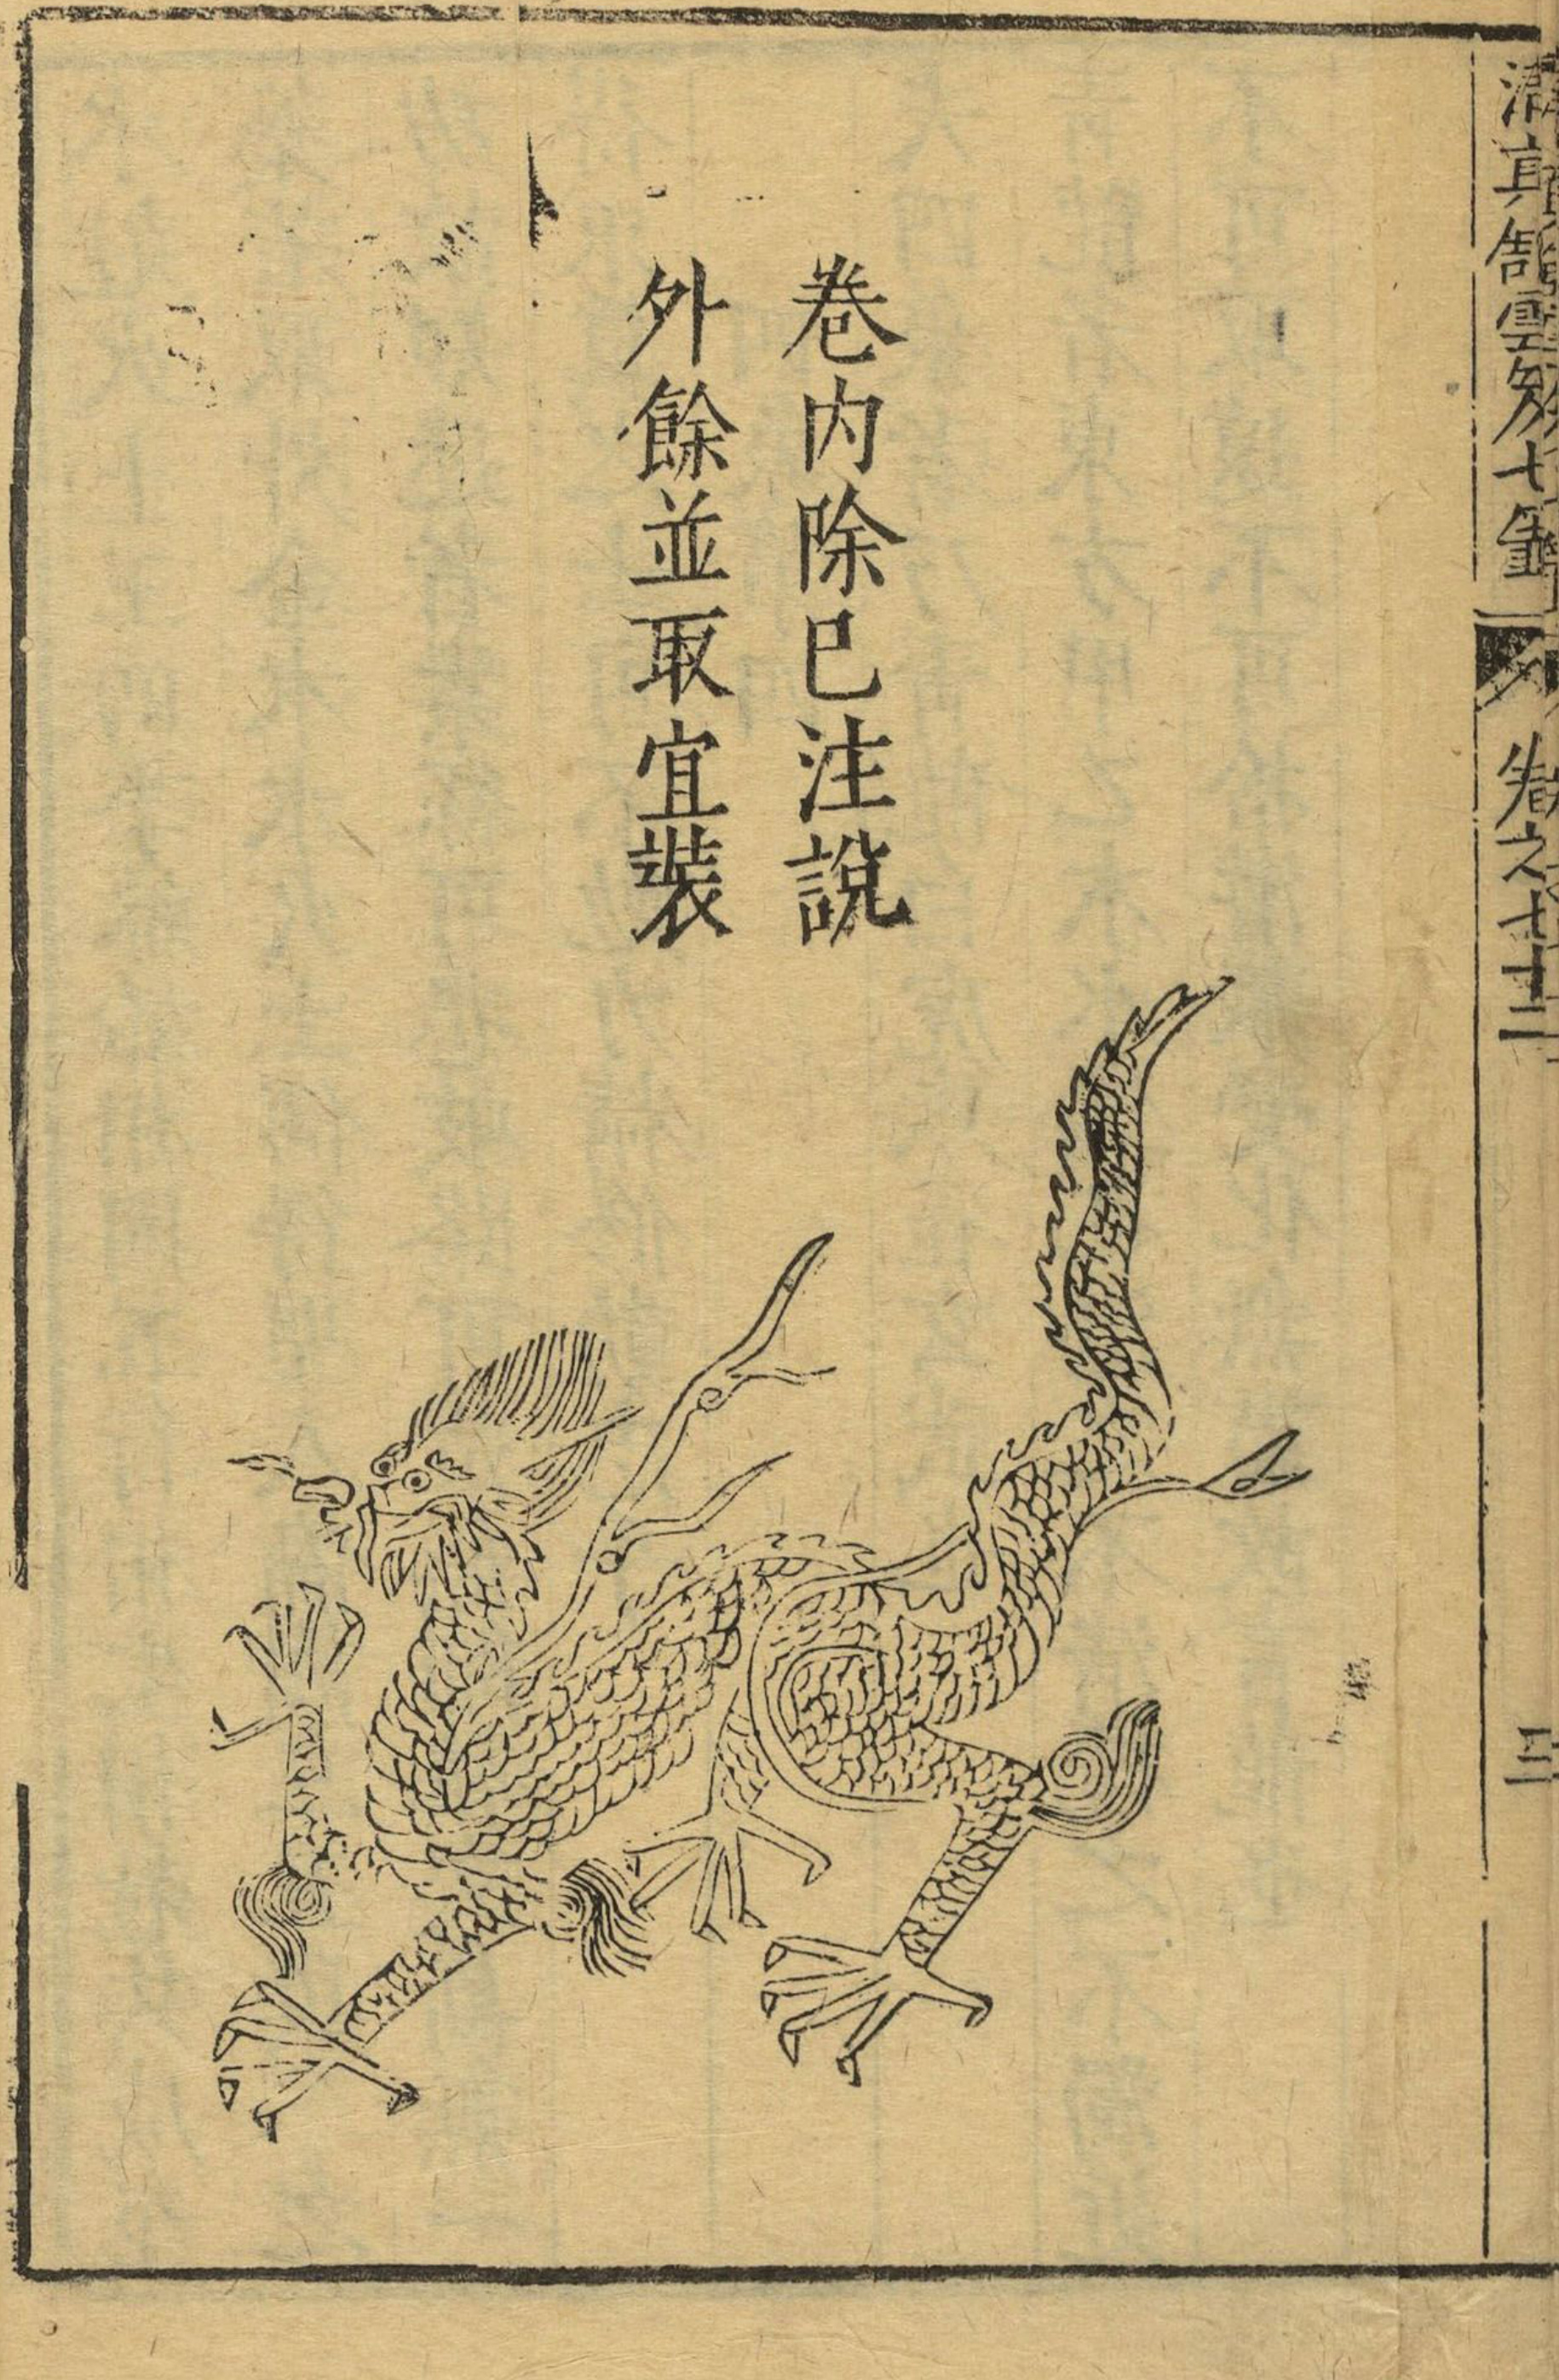 卷内除已注說
外餘並取宜裝
清真館雲笈七籤
卷之七十二
三